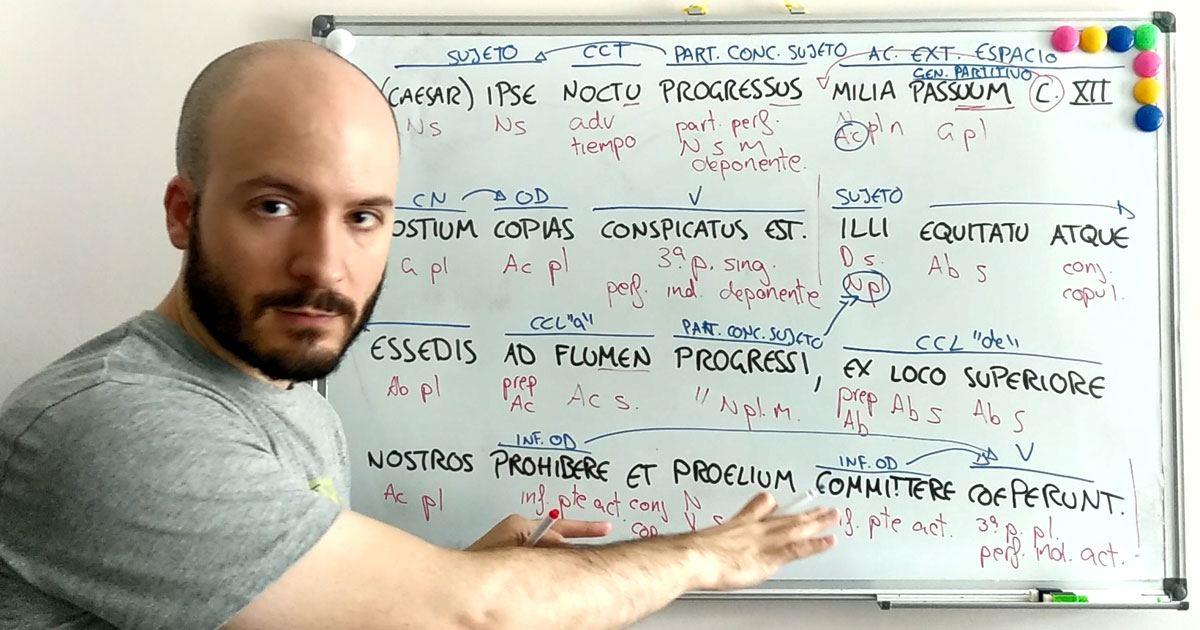 SUJETO CCT PART. CONC. SUJETO AC. EXT. ESPACIO
GEN. PARTITIVO
(CAESAR) IPSE NOCTU PROGRESSUS MILIA PASSUUM C. XII
NS NS adv part. perf. N Ac pl n G pl
tiempo N S M
deponente.
CN OD V SUJETO
OSTIUM COPIAS CONSPICATUS EST. ILLI EQUITATU ATQUE
G pl Ac pl 3ª p. sing. D s. Ab s conj.
perf. ind. deponente N pl copul.
CCL "a" PART. CONC. SUJETO CCL "de"
ESSEDIS AD FLUMEN PROGRESSI, EX LOCO SUPERIORE
Ab pl prep Ac s. " N pl. m. prep Ab s Ab s
Ac Ab
INF. OD INF. OD V
NOSTROS PROHIBERE ET PROELIUM COMMITTERE COEPERUNT.
Ac pl inf. pte act. conj N pte act. 3ª p. pl.
cop perf. ind. act.